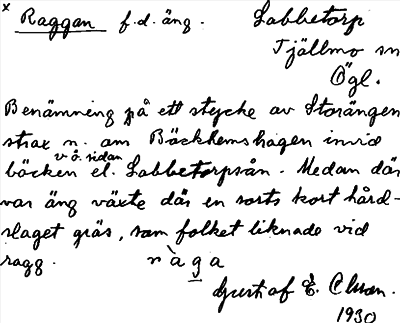 x Raggan f.d. äng. Labbetorp
Tjällmo sn
Ögl.
Benämning på ett stycke av Storängen
strax n. om Bäckhemshagen invid
v. å. sidan
bäcken el. Labbetorpsån. Medan där
var äng växte där en sorts kort hård-
slaget gräs, som folket liknade vid
ragg. ràga
Gustaf E.
1930